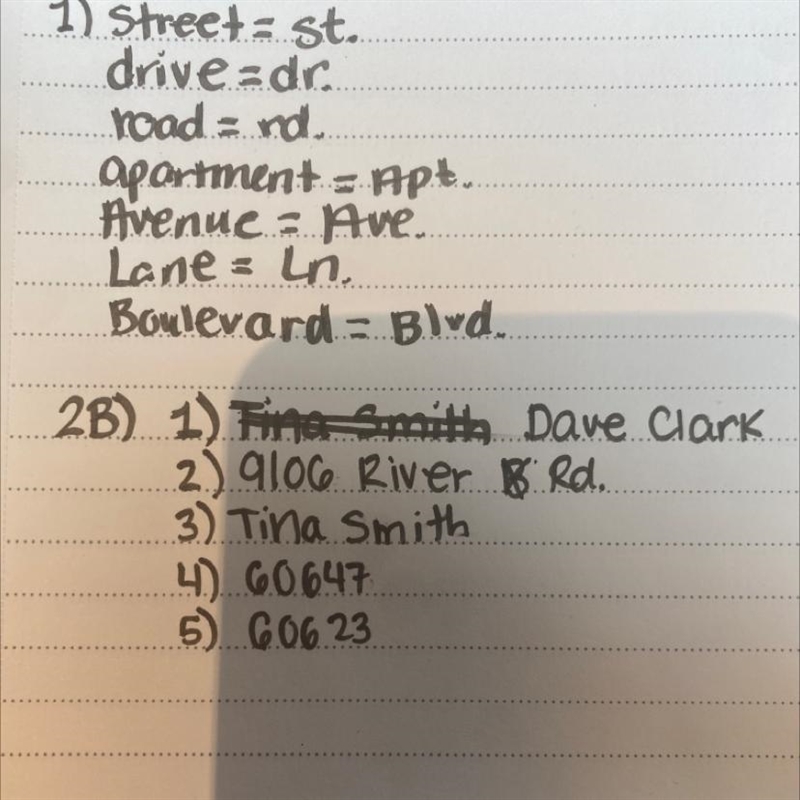 1) Street = st.
drive = dr.
road = rd.
apartment = Apt.
Avenue = Ave.
Lane = Ln.
Boulevard = Blvd.
2B) 1) Tina Smith Dave Clark
2) 9106 River Rd.
3) Tina Smith
4) 60647
5) 60623